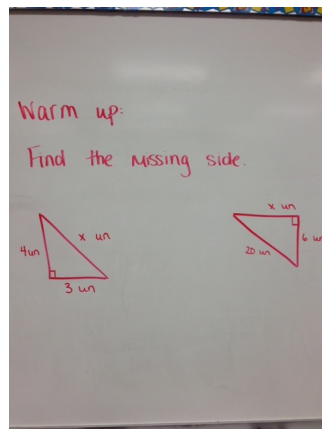 Warm up:
Find the missing side.
x un
4un
x un
6 un
20 un
3 un